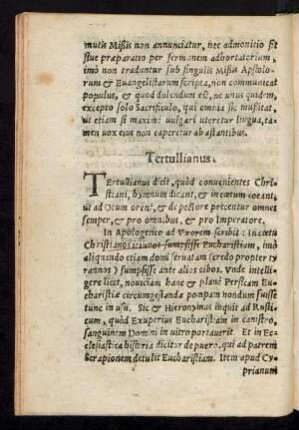 mutis Missis non annunciatur, nec admonitio fit
siue præparatio per sermonem adhortatorium,
imò non traduntur sub singulis Missis Apostolo-
rum & Euangelistarum scripta, non communicat
populus, & quod dolendum est, ne unus quidem,
excepto solo Sacrificulo, qui omnia sic mussitat,
ut etiam si maximè uulgari uteretur lingua, ta-
men uox eius non caperetur ab astantibus.
Tertullianus.
Tertullianus dicit, quòd conuenientes Chri-
stiani, hymnum dicant, & in coetum coeant,
ut ad Deum orent, & de pectore precentur omnes
semper, & pro omnibus, & pro Imperatore.
In Apologetico ad Vxorem scribit: In coetu
Christianos sumpsisse Eucharistiam, imò
aliquando etiam domi seruatam (credo propter ty
rannos) sumpsisse ante alios cibos. Vnde intelli-
gere licet, nouiciam hanc & planè Persicam Eu-
charistiæ circumgestandæ pompam nondum fuisse
tunc in usu. Sic & Hieronymus inquit ad Rusti-
cum, quòd Exuperius Eucharistiam in canistro,
sanguinem Domini in uitro portauerit. Et in Ec-
clesiastica historia dicitur de puero, qui ad patrem
Serapionem detulit Eucharistiam. Item apud Cy-
prianum